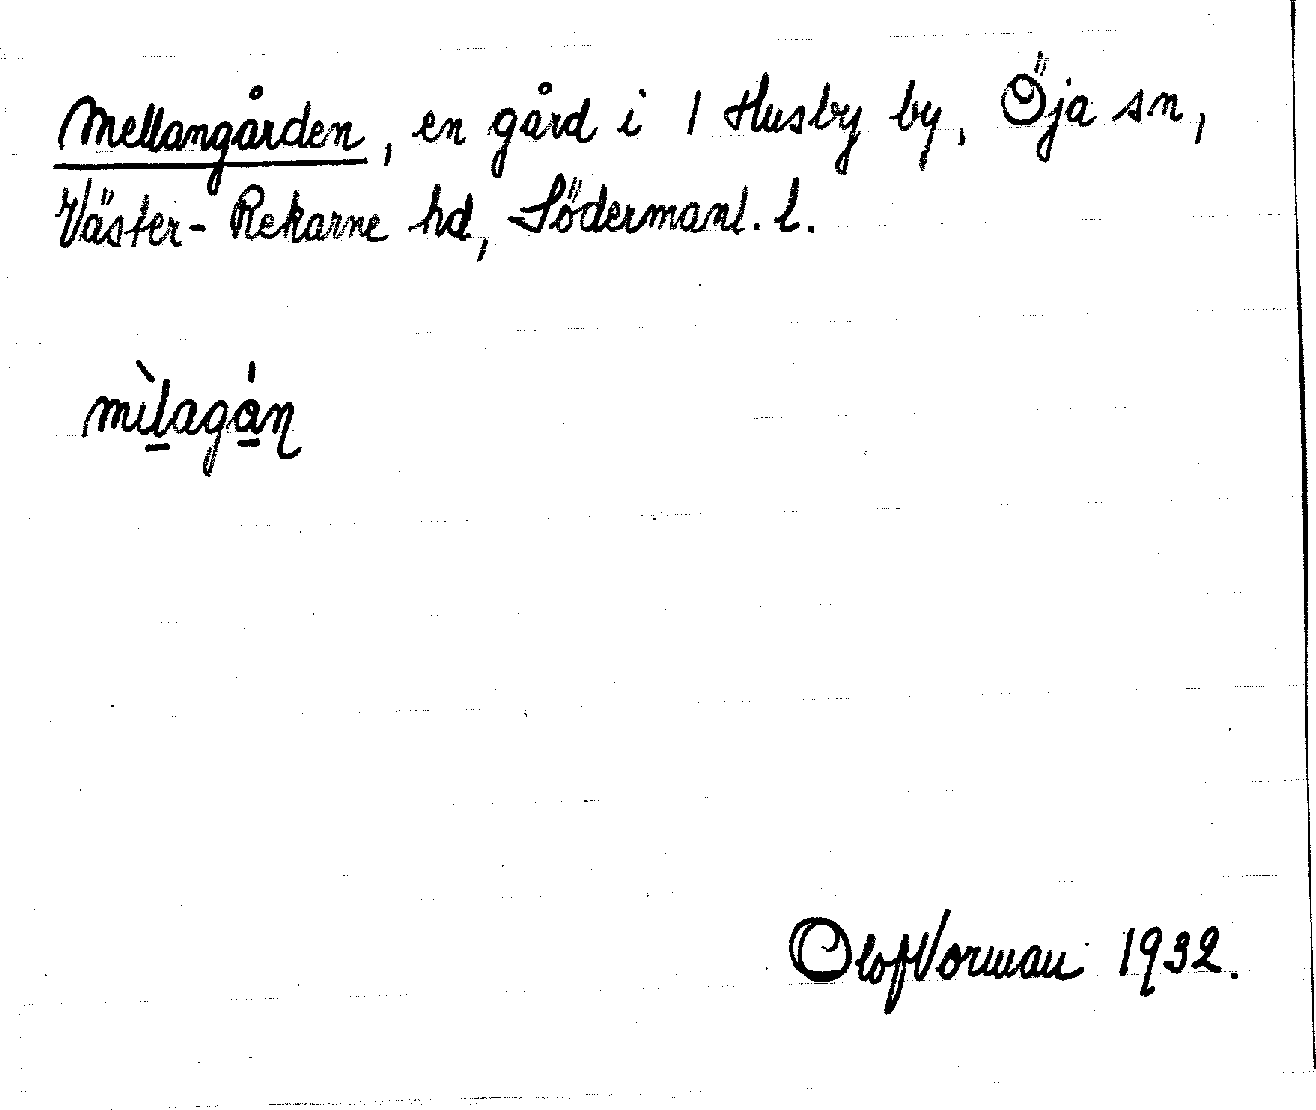 Mellangården, en gård i 1 Husby by, Öja sn,
Väster-Rekarne hd, Södermanl. l.
mìlagán
Olof Norman 1932.